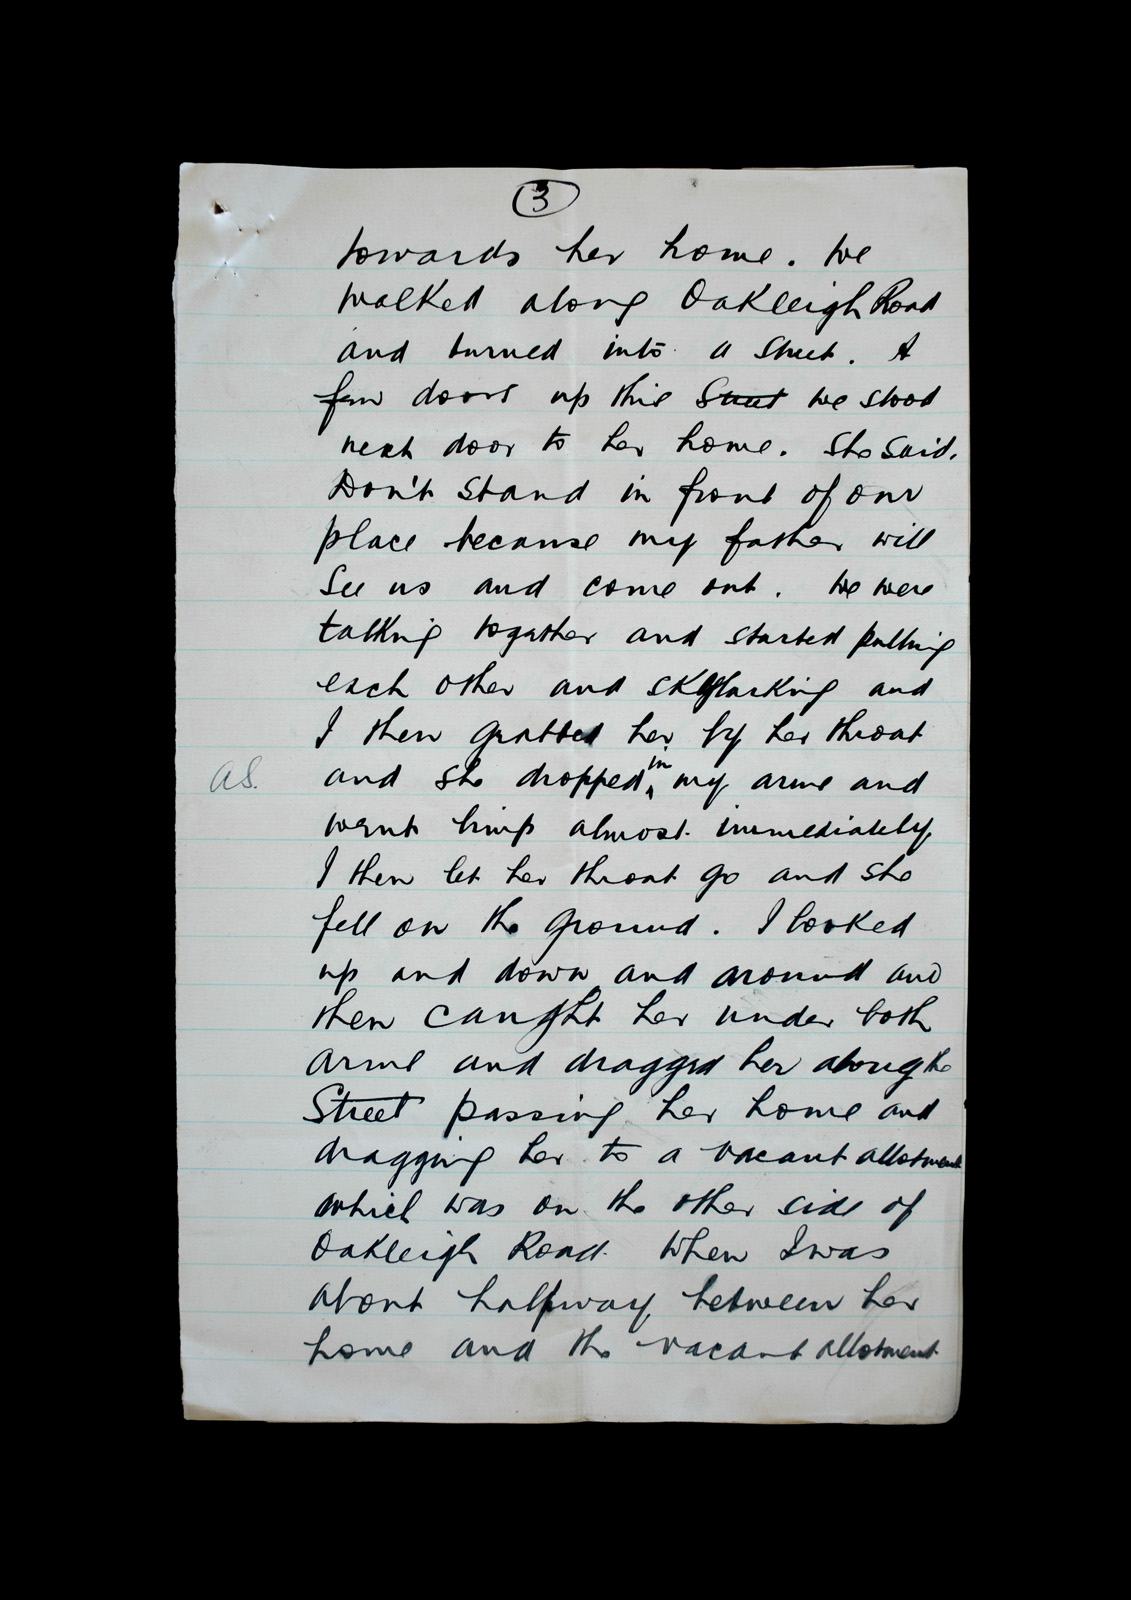 3
towards her home. We
walked along Oakleigh Road
and turned into a Street. A
few doors up this Street we stood
next door to her home. She said,
Don't stand in front of our
place because my father will
See us and come out. We were
talking together and started pulling
each other and skylarking and
I then grabbed her by her throat
as. and she dropped in my arms and
went limp almost immediately,
I then let her throat go and she
fell on the ground. I looked
up and down and around and
then caught her under both
arms and dragged her along the
Street passing her home and
dragging her to a vacant allotment
which was on the other side of
Oakleigh Road. When I was
about halfway between her
home and the vacant allotment